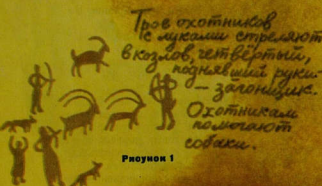 Трое охотников
с луками стреляют
в козлов, четвёртый,
поднявший руки
— загонщик.
Охотникам
помогают
собаки.
Рисунок 1